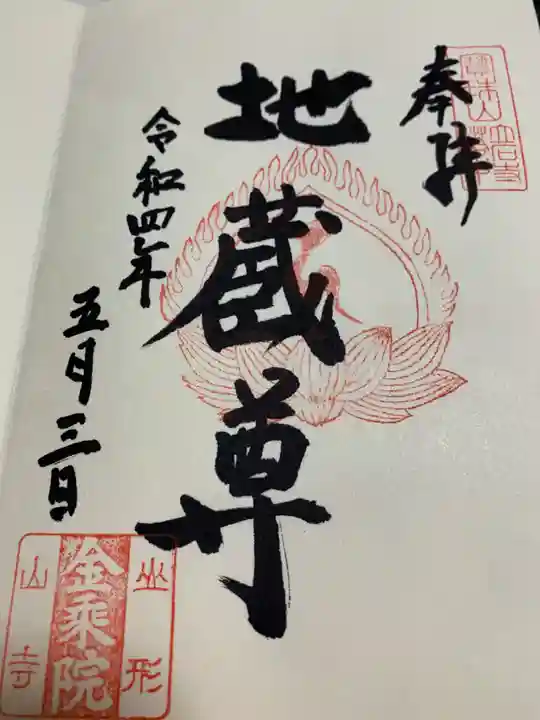 奉拝
地蔵尊
令和四年
五月三日
山形
金乗院
山寺